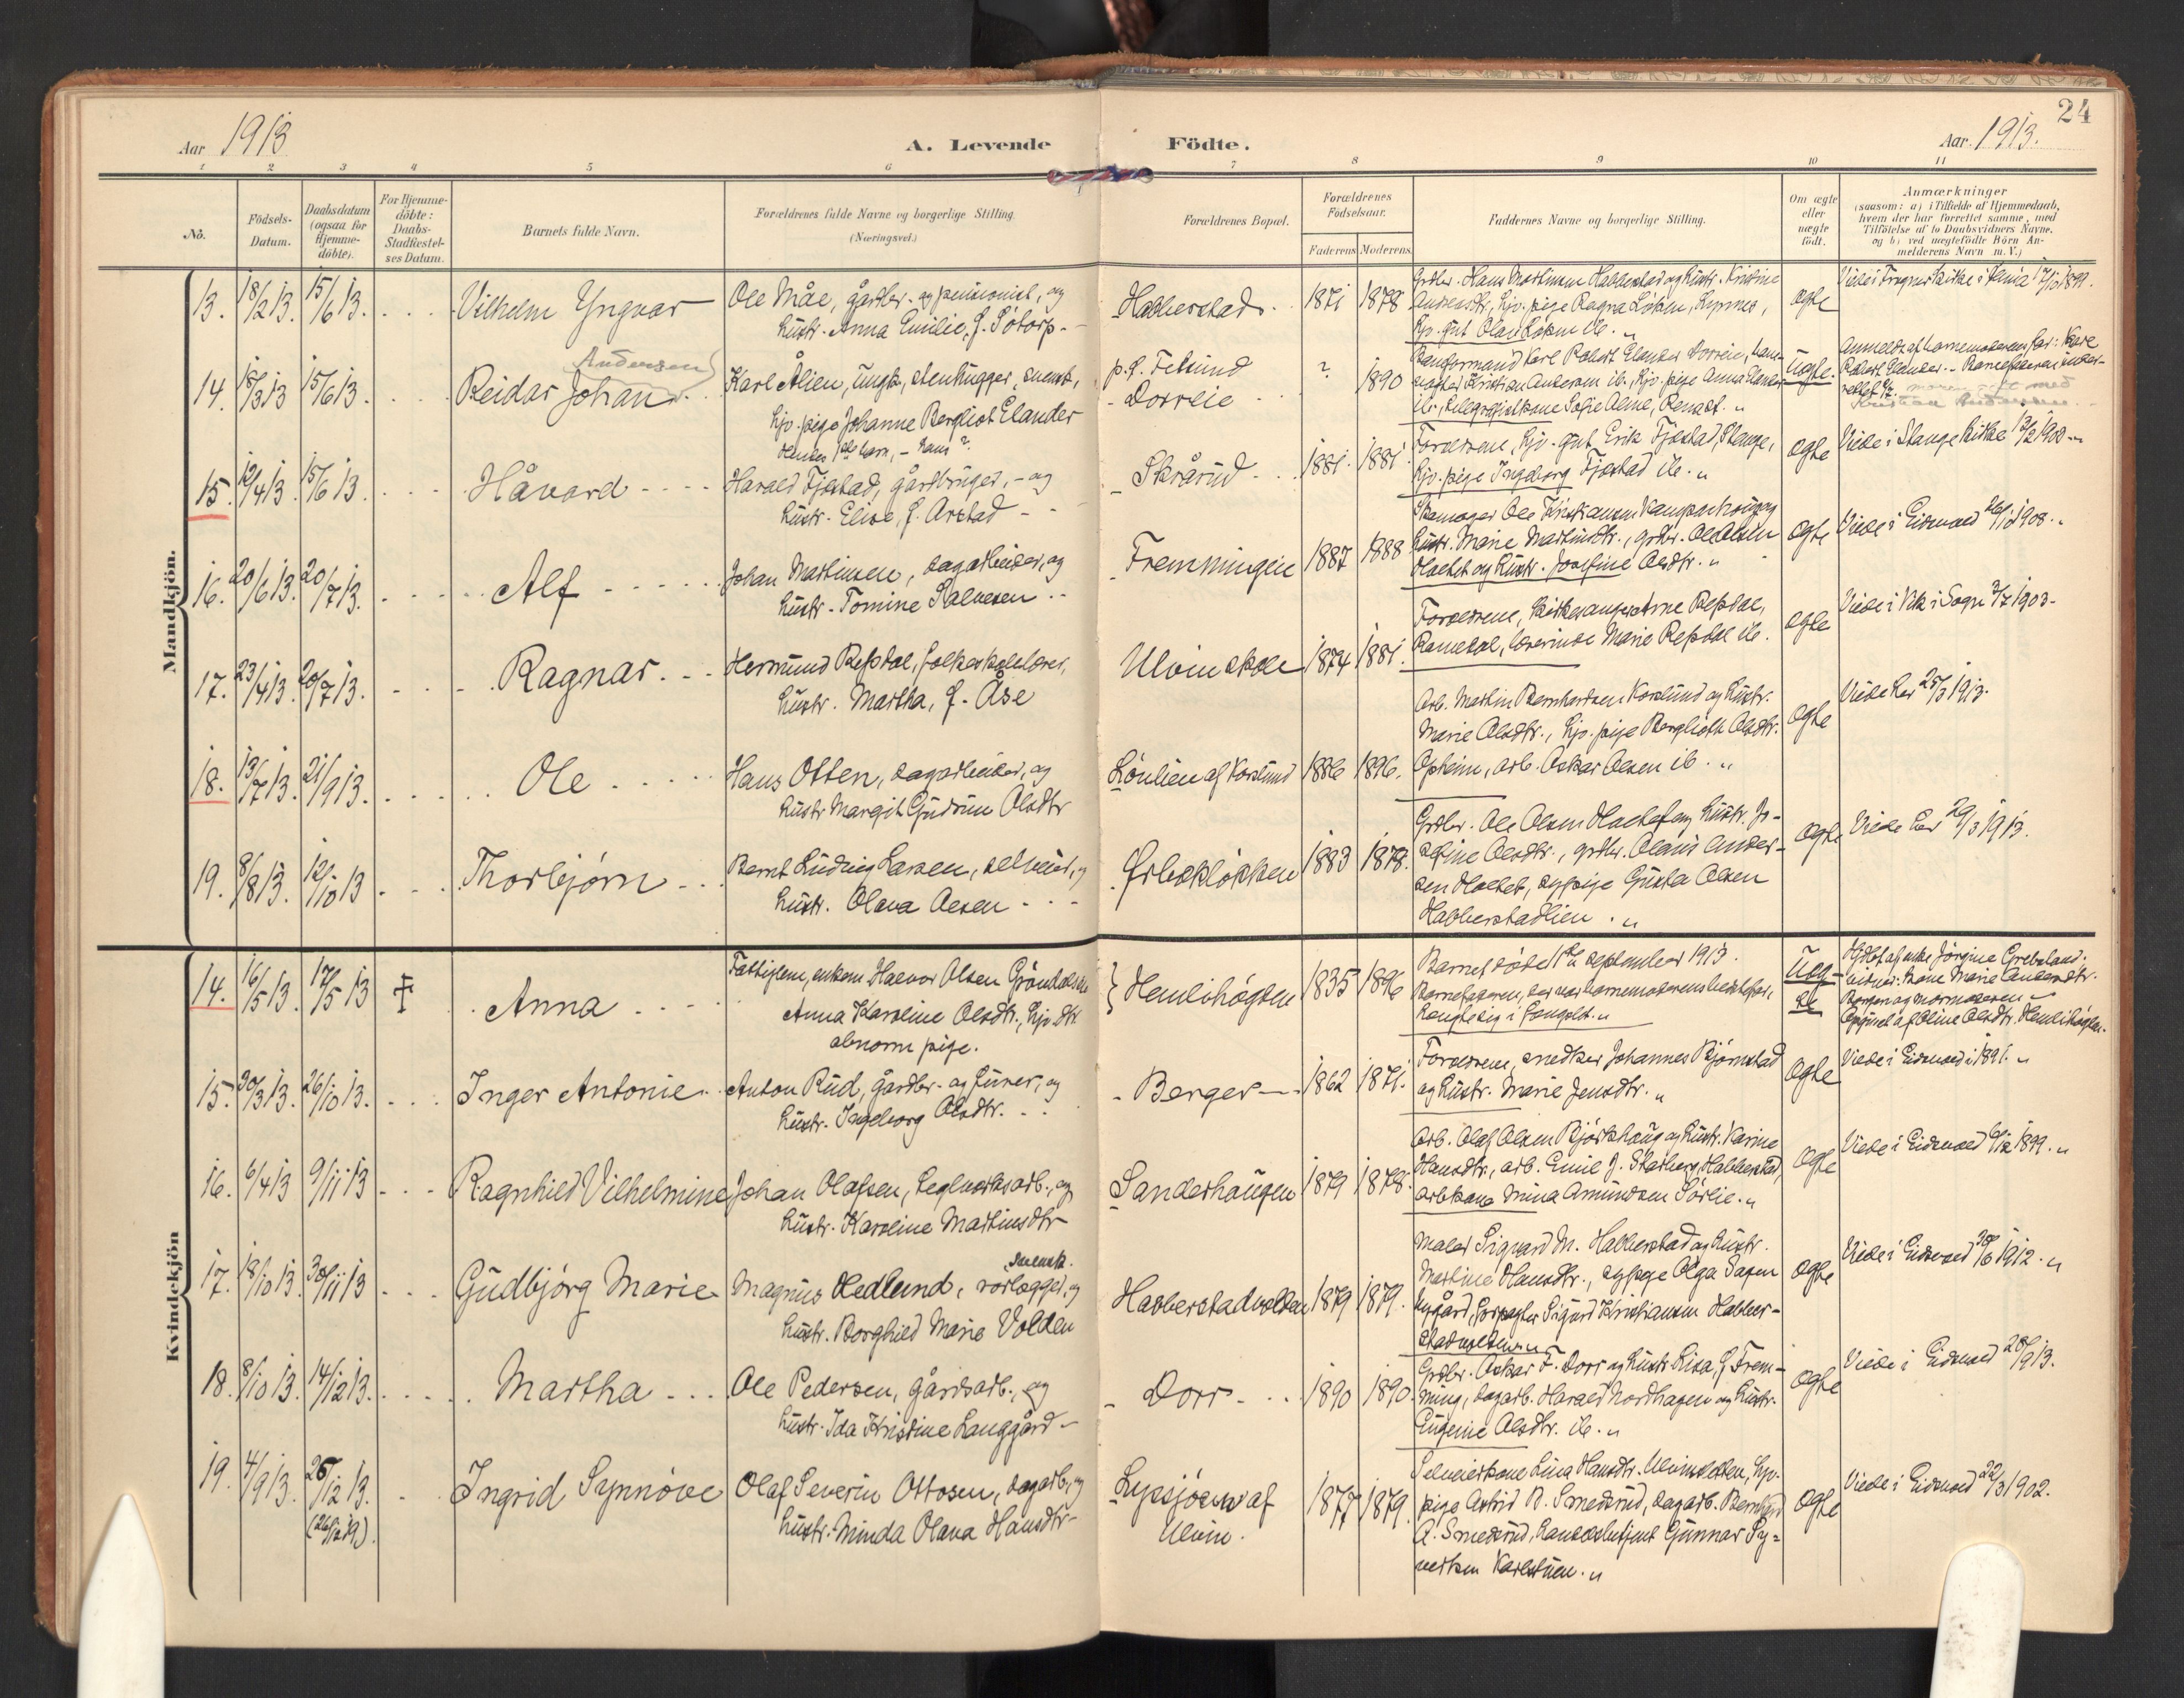 24
Aar 1913
A. Levende
Födte.
Aar 1913.
1 2 3 4 5 6 7 8 9 10 11
No.
Födsels-
Datum.
Daabsdatum
(ogsaa for
Hjemme-
döbte).
For Hjemme-
döbte:
Daabs-
Stadfæstel-
ses Datum.
Barnets fulde Navn.
Forældrenes fulde Navne og borgerlige Stilling.
(Næringsvei.)
Forældrenes Bopæl.
Forældrenes
Födselsaar.
Faderens Moderens
Faddernes Navne og borgerlige Stilling.
Om ægte
eller
uægte
födt.
Anmærkninger
(saasom: a) i Tilfælde af Hjemmedaab,
hvem der har forrettet samme, med
Tilföielse af to Daabsvidners Navne,
og b) ved uægtefödte Börn An-
melderens Navn m. V.)
Mandkjön.
13. 18/2 13. 15/6 13. Vilhelm Yngvar
Ole Måe, gårdbr. og pensionist, og
hustr. Anna Emilie, f.
Habberstad. 1871 1878
Grdbr. Hans Martinsen Habberstad og hustr. Kristine
Andersdtr., hjv. pige Ragna Löken,
hjv. gut Olav Löken ib.
ægte
14. 18/3 13 15/6 13. Reidar Johan
Andersen
Karl Ålien, ungk., stenhugger, svensk,
hjv. pige Johanne Bergliot Elander
Hendes 1ste barn, - hans ?
p.t. Fetsund
Dorreie
? 1890
Karl Robert Elander Dorreie,
Kristian Andersen ib., hjv. pige Anna Elander
ib., Sofie
Uægte.
Anmeldt af barnemoderens far: Karl
Robert Elander. - Barnefaderen under-
rettet
moren gift med
Kristian Andersen.
15. 12/4 13. 15/6 13. Håvard
Harald Fjæstad, gårdbruger, - og
hustr. Elise, f. Arstad
Skrårud 1881. 1881.
Forældrene, hjv. gut Erik Fjæstad, Stange,
hjv. pige Ingeborg Fjæstad ib.
ægte
Viede i Stange kirke 13/2 1908
16. 20/6 13. 20/7 13. Alf
Johan Martinsen, dagarbeider, og
hustr. Tomine Salvesen
Fremmingen 1887 1888
Skomager Ole Kristiansen og
hustr. Marie Martinsdtr., grdbr. Ole Olsen
Hoelet og hustr. Josefine Olsdtr.
ægte
Viede i Eidsvold 1908.
17. 23/4 13. 20/7 13. Ragnar
Hermund Refsdal, folkeskolelærer,
hustr. Martha, f. Åse
Ulvin skole 1874 1881.
Forældrene, kirkesanger Arne Refsdal,
Romedal, lærerinde Marie Refsdal ib.
ægte
Viede i Vik i Sogn 3/7 1903.
18. 13/7 13. 21/9 13. Ole
Hans Otten, dagarbeider, og
hustr. Margit Gudrun Olsdtr
Lönlien af Korslund 1886 1896.
Arb. Martin Bernhardsen Korslund og hustr.
Marie Olsdtr., hjv. pige Bergliot Olsdtr.
Opheim, arb. Oskar Olsen ib.
ægte
Viede her 25/3 1913.
19. 8/8 13. 12/10 13 Thorbjörn
Bernt Ludvig Larsen, selveier, og
hustr. Olava Olsen
Ørbeklökken 1883 1878.
Grdbr. Ole Olsen Hoelet og hustr. Jo-
sefine Olsdtr., grdbr. Olaus Ander-
sen Hoelet, sypige Gusta Olsen
Habberstadlien.
ægte
Viede her 29/3 1913.
Kvindekjön
14. 16/5 13. 17/5 13 Anna
Fattiglem, enkem. Halvor Olsen Gröndalen
Anna Karoline Olsdtr., hjv. dtr.
abnorm pige.
Hemlihögden 1835 1896
Barnet döde 1ste september 1913.
Barnefaderen, der var barnemoderens bedstefar,
hængte sig i fængslet.
Uæg-
te
Hjdbt. af enke Jörgine Grebsland.
vidner: kone Marie Andersdtr.
og mormoderen
af Oline Olsdtr. Hemlihögden.
15. 30/3 13. 26/10 13. Inger Antonie
Anton Rud, gårdbr. og, og
hustr. Ingeborg Olsdtr.
Berger 1862 1871.
Forældrene, snedker Johannes Björnstad
og hustr. Marie Jensdtr.
ægte
Viede i Eidsvold i 1891.
16. 6/4 13 9/11 13 Ragnhild Vilhelmine
Johan Olafsen, teglverksarb., og
hustr. Karoline Martinsdtr
Sanderhaugen 1879 1878.
Arb. Olaf Olsen Björkhaug og hustr. Karine
Hansdtr., arb. Emil J. Habberstad,
arb.kone Mina Amundsen Sörlie.
ægte
Viede i Eidsvold 6/12 1899.
17. 18/10 13. 30/11 13 Gudbjörg Marie
svensk.
Magnus Hedlund, rörlægger, og
hustr. Borghild Marie Volden
Habberstadvolden 1879 1879.
Maler Sigvard M. Habberstad og hustr.
Martine Hansdtr., sypige Olga Sagen
Nygård, forpagter Sigurd Kristiansen Habber-
stadvolden.
ægte
Viede i Eidsvold 1912.
18. 8/10 13. 14/12 13. Martha
Ole Pedersen, gårdsarb., og
hustr. Ida Kristine Langgård
Dorr 1890 1890.
Grdbr. Oskar F. Dorr og hustr. Lisa, f. Frem-
ming, dagarb. Harald Nordhagen og hustr.
Eugenie Olsdtr. ib.
ægte
Viede i Eidsvold 28/9 13.
19. 4/9 13. 26/12 13. Ingrid Synnöve
(26/12 19).
Olaf Severin Ottosen, dagarb., og
hustr. Minda Olava Hansdtr
Lysjöen af
Ulvin.
1877 1879.
Selveierkone Lina Hansdtr. Ulvinsletten, hjv.
pige Astrid B. Smedsrud, dagarb. Bernhard
A. Smedsrud, Gunnar Sy-
vertsen
ægte
Viede i Eidsvold 22/3 1902.